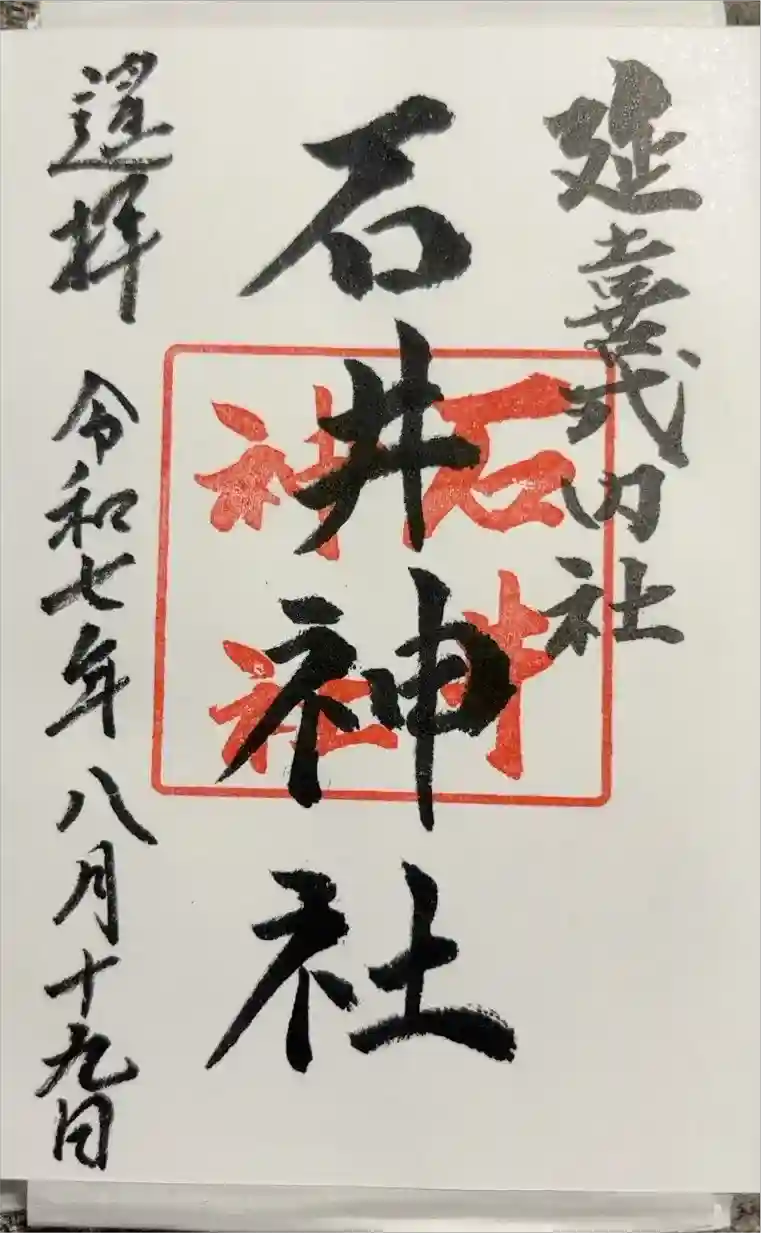 延喜式内社
石井神社
石井
神社
遥拝 令和七年 八月十九日